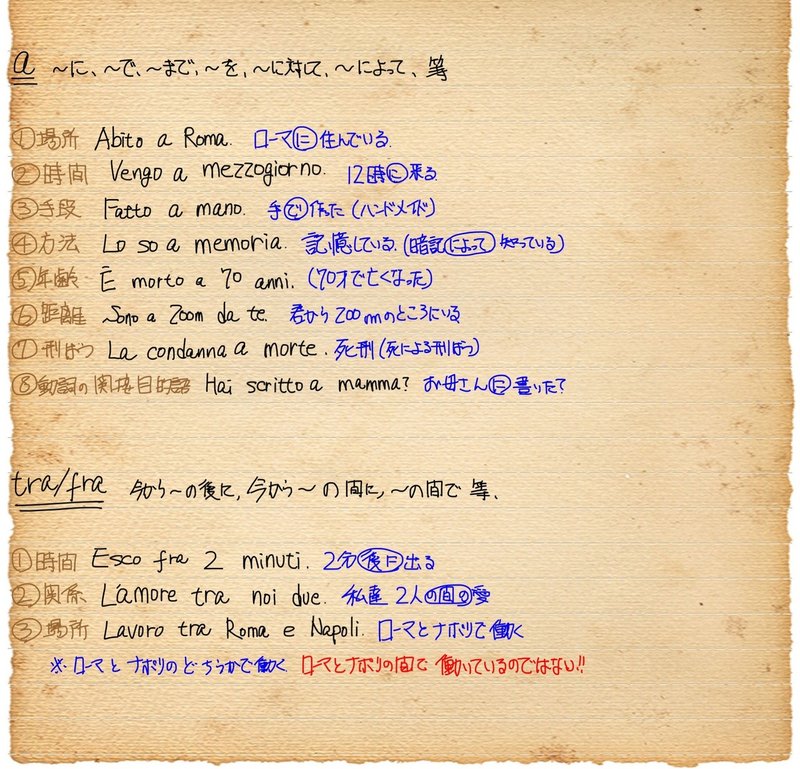 a ～に、～で、～まで、～を、～に対して、～によって、等
①場所 Abito a Roma. ローマに住んでいる.
②時間 Vengo a mezzogiorno. 12時に来る.
③手段 Fatto a mano. 手で作った(ハンドメイド)
④方法 Lo so a memoria. 記憶している.(暗記によって知っている)
⑤年齢 È morto a 70 anni. (70才で亡くなった)
⑥距離 Sono a 200m da te. 君から200mのところにいる
⑦刑ばつ La condanna a morte. 死刑(死による刑ばつ)
⑧動詞の関接目的語 Hai scritto a mamma? お母さんに書いた?
tra/fra 今から～の後に, 今から～の間に, ～の間で 等、
①時間 Esco fra 2 minuti. 2分後に出る
②関係 L'amore tra noi due. 私達2人の間の愛
③場所 Lavoro tra Roma e Napoli. ローマとナポリで働く
※ローマとナポリのどちらかで働く. ローマとナポリの間で働いているのではない!!